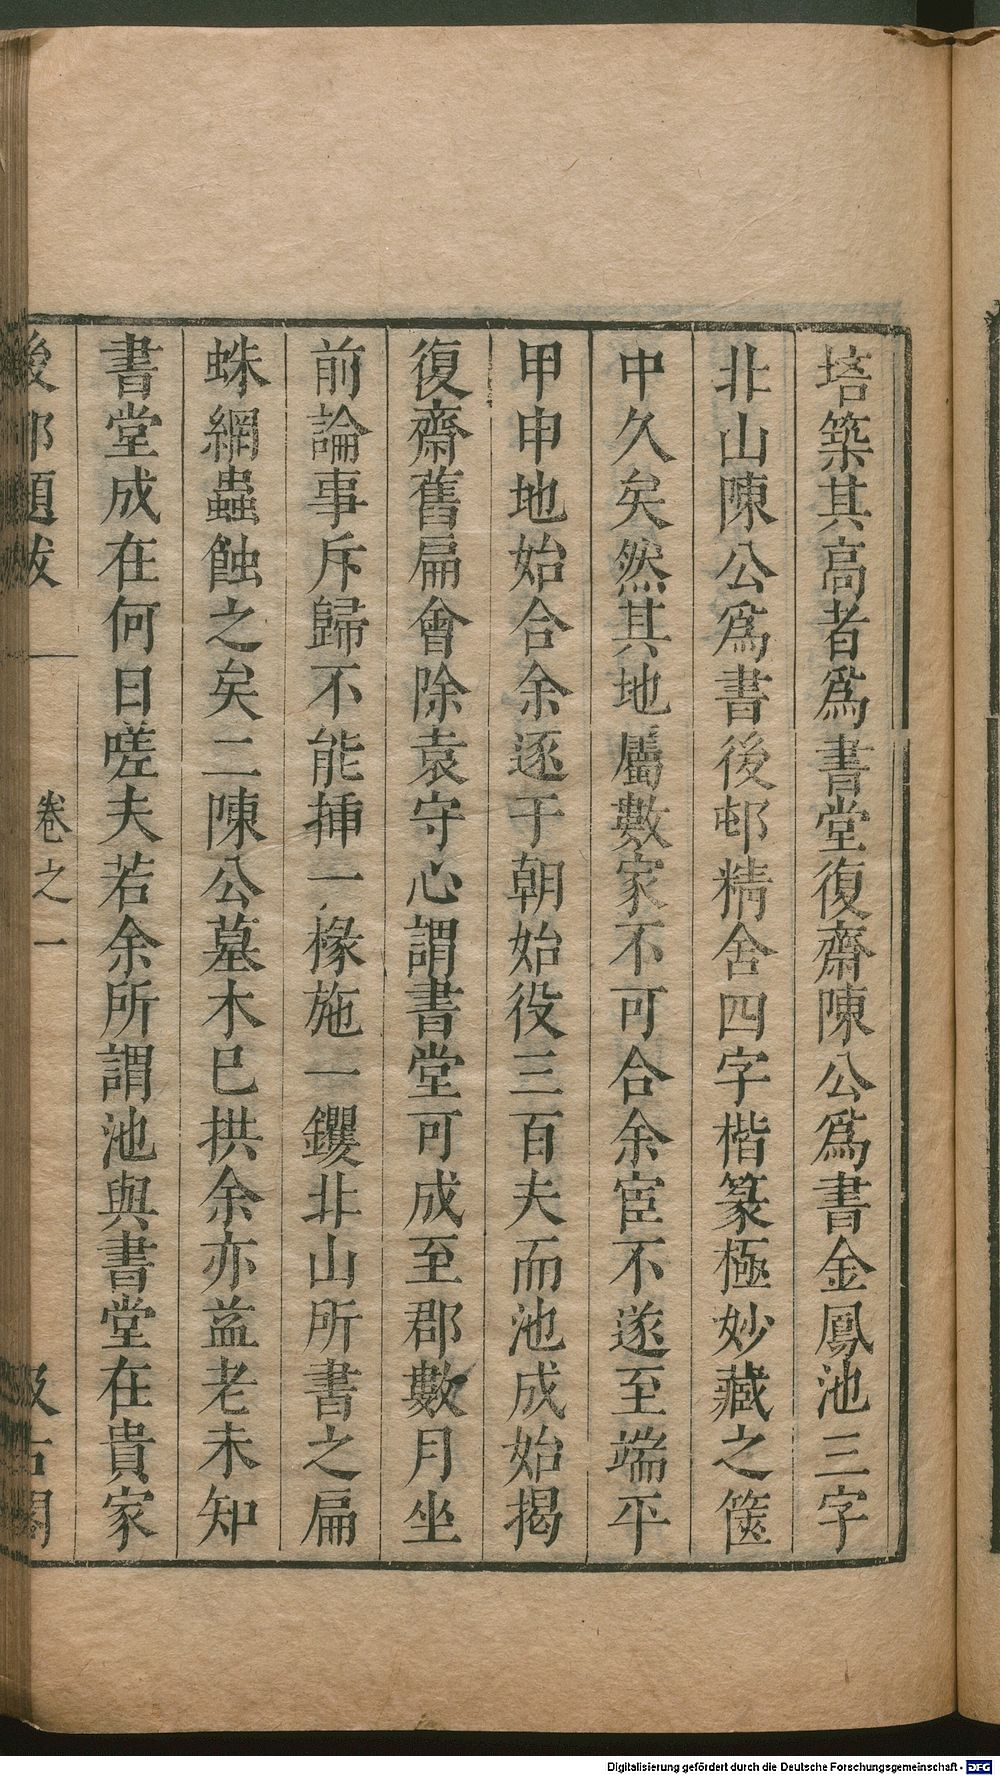 培築其高者爲書堂復齋陳公爲書金鳳池三字
北山陳公爲書後邨精舍四字楷篆極妙藏之篋
中久矣然其地屬數家不可合余宦不遂至端平
甲申地始合余逐于朝始役三百夫而池成始揭
復齋舊扁會除袁守心謂書堂可成至郡數月坐
前論事斥歸不能揷一椽施一钁北山所書之扁
蛛網蟲蝕之矣二陳公墓木已拱余亦益老未知
書堂成在何日嗟夫若余所謂池與書堂在貴家
後邨題跋 一 卷之一 汲古閣
Digitalisierung gefördert durch die Deutsche Forschungsgemeinschaft - DFG